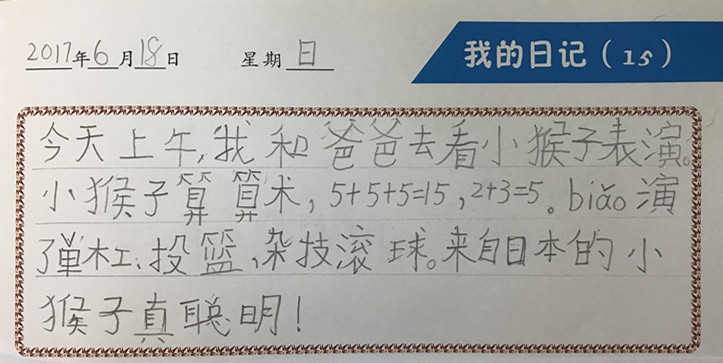 2017年6月18日 星期日 我的日记(15)
今天上午,我和爸爸去看小猴子表演。
小猴子算算术,5+5+5=15,2+3=5。biǎo演
弹杠、投篮、杂技滚球。来自日本的小
猴子真聪明!